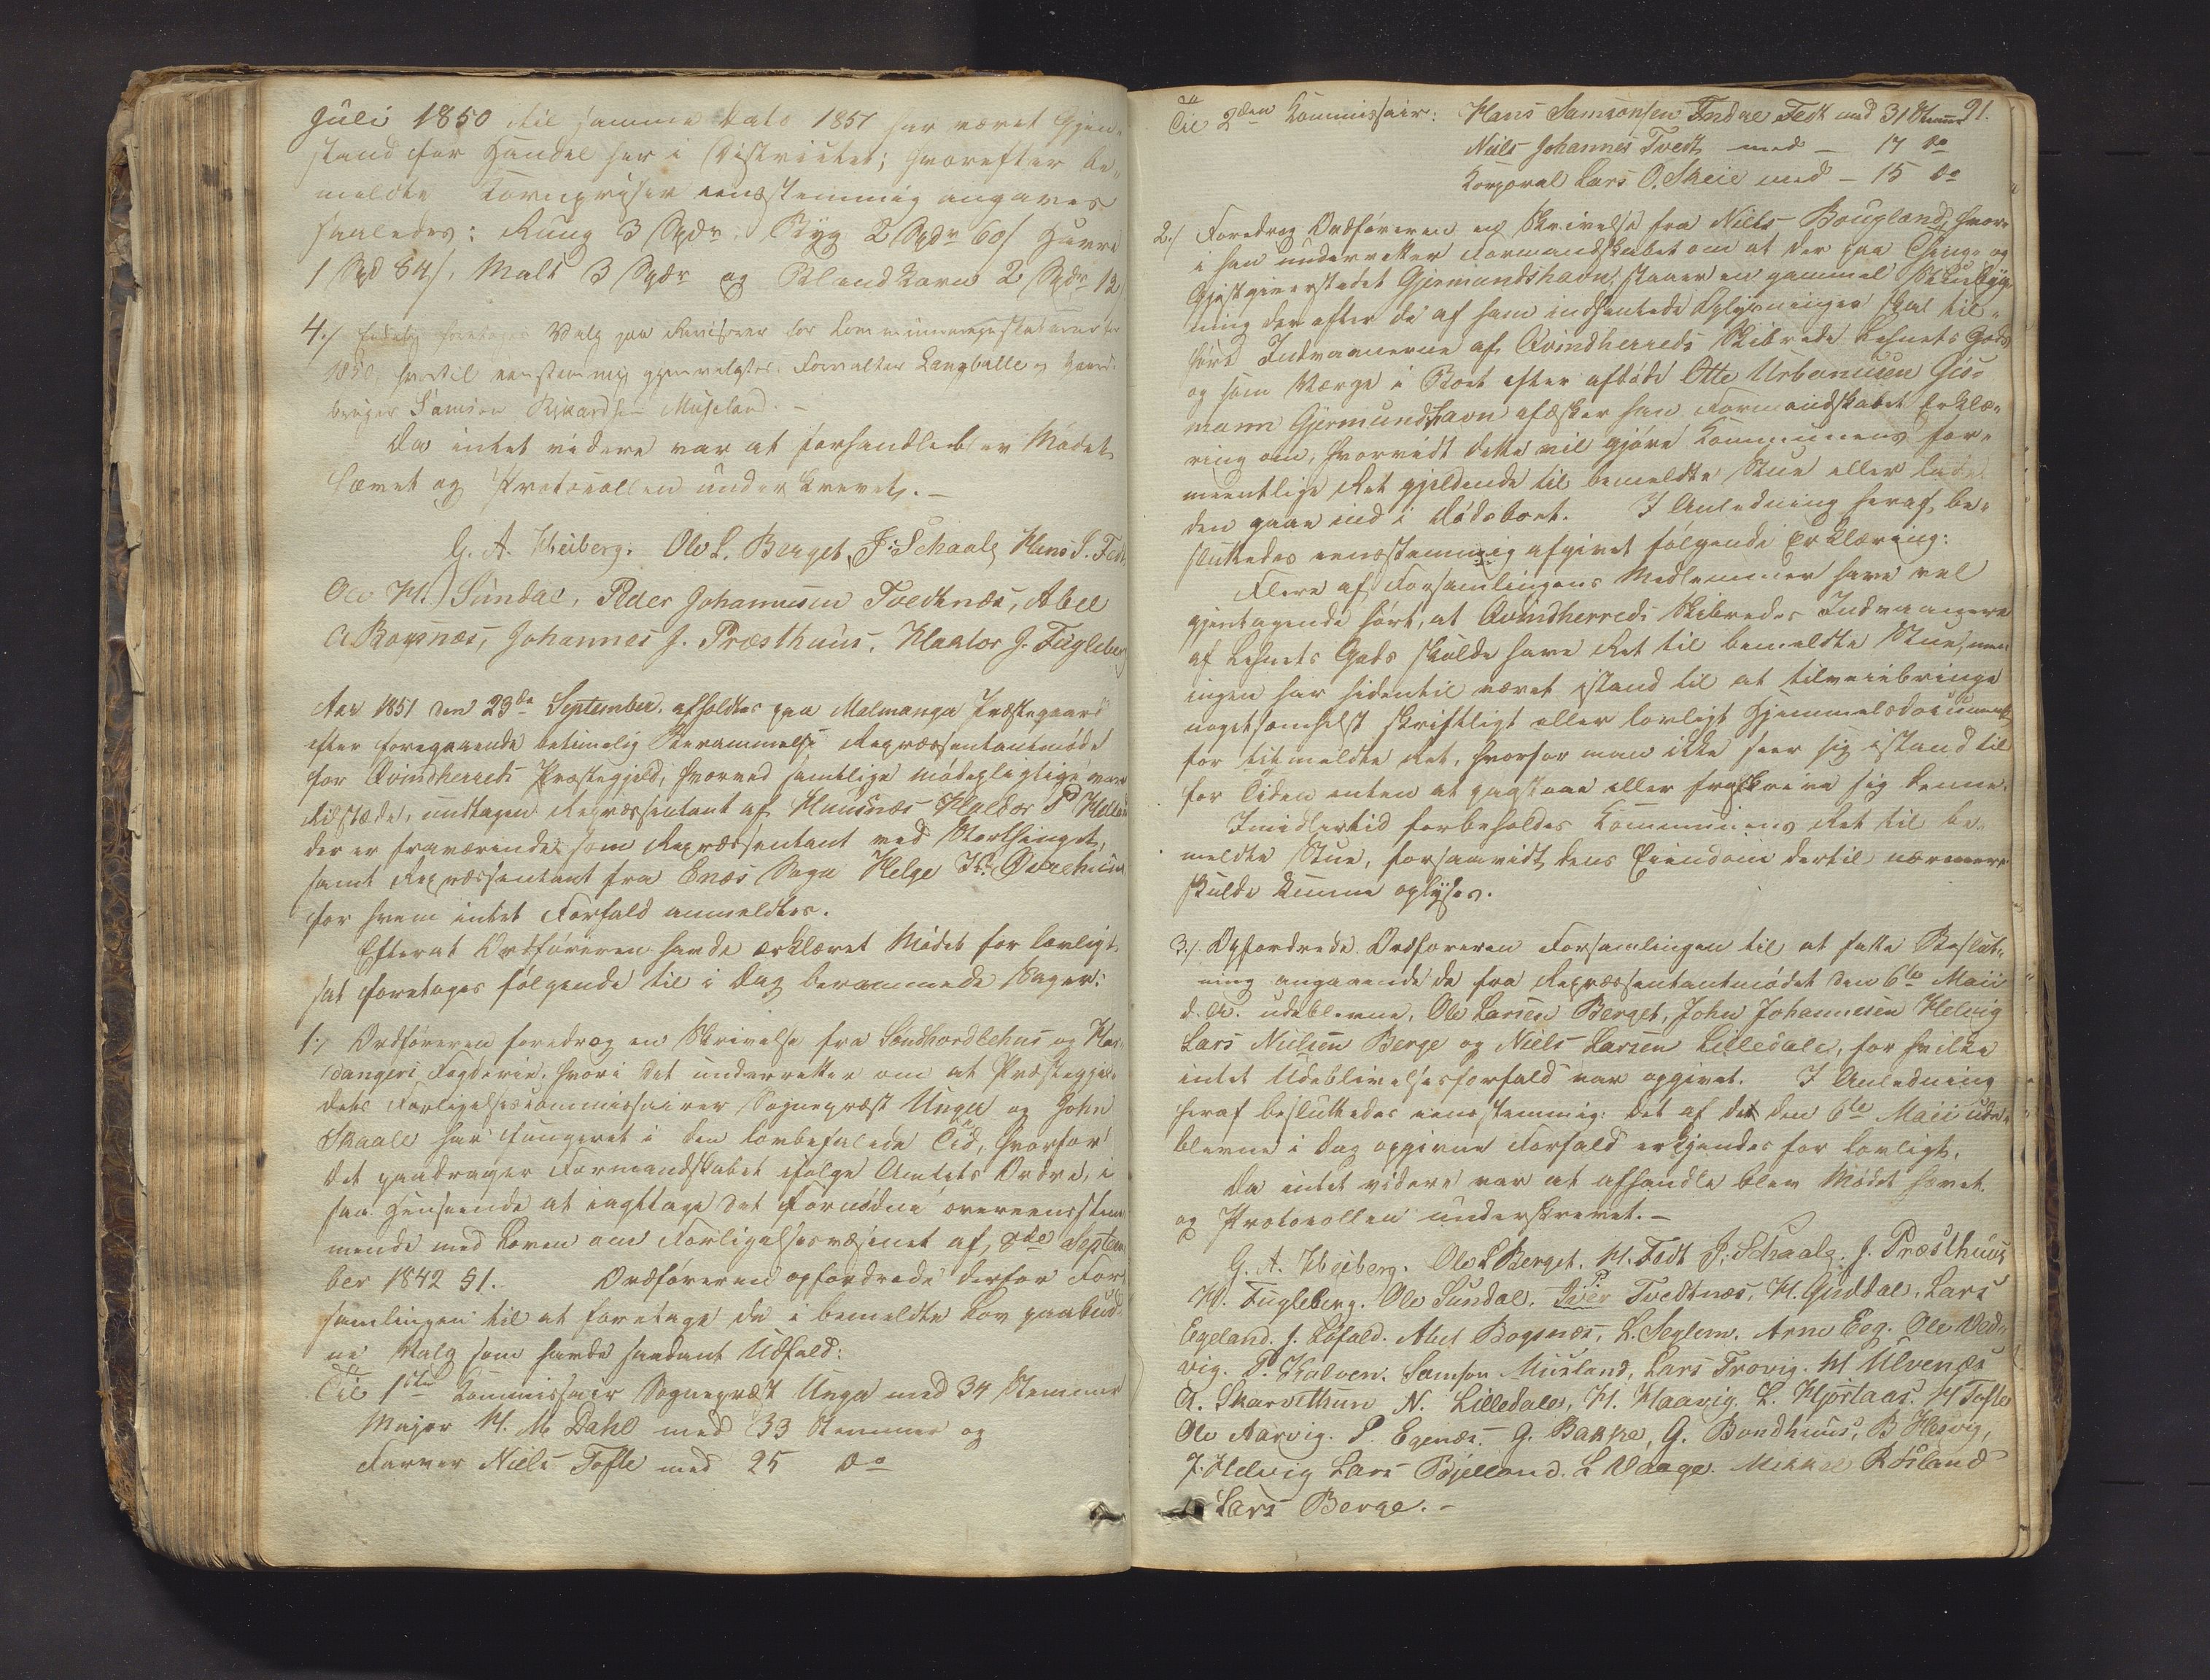 Juli 1850 til samme Dato 1851 har været Gjen-
stand for Handel her i Districtet; hvorefter be-
meldte Kornpriser eenstemmig angaves
saaledes: Rug 3 Spdr, Byg 2 Spdr 60/ Havre
1 Spd 84/, Malt 3 Spdr og Blandkorn 2 Spdr 12
4./ Endelig foretoges Valg paa Revisorer for Communeregnskaberne for
1850, hvortil eenstemmig gjenvalgtes: Forvalter Langballe og Gaard-
bruger Samson Rikardsen Musland. –
Da intet videre var at forhandle blev Mødet
hævet og Protocollen underskrevet. –
G. A. Heiberg. Ole L. Berget, J: Schaale Hans S. Fedt,
Ole H. Sundal, Peder Johannesen Tvedtnæs, Abel
A Bogsnæs, Johannes J. Præsthuus, Haktor J. Fugleberg
Aar 1851 den 23de September, afholdtes paa Malmanger Præstegaard
efter foregaaende betimelig Berammelse Repræsentantmøde
for Qvindherreds Præstegjeld, hvorved samtlige mødepligtige vare
tilstæde, undtagen Repræsentant af Huusnæs Haldor P
der er fraværende som Repræsentant ved Storthinget,
samt Repræsentant fra Enæs Sogn Helge
for hvem intet Forfald anmeldtes.
Efterat Ordføreren havde erklæret Mødet for lovligt
sat foretoges følgende til i Dag berammede Sager:
1./ Ordføreren foredrog en Skrivelse fra Søndhordlehns og Har-
dangers Fogderie, hvori det underretter om at Præstegjel-
dets Forligelsescommissairer Sognepræst Unger og John
Skaale har fungeret i den lovbefalede Tid, hvorfor
det paadrager Formandskabet ifølge Amtets Ordre, i
saa Henseende at iagttage det Fornødne overeensstem-
mende med Loven om Forligelsesvæsenet af, 8de Septem
ber 1842 §1. Ordføreren opfordrede derfor For-
samlingen til at foretage de i bemeldte Lov paabud-
ne Valg som havde saadant Udfald:
Til 1ste Commissair Sognepræst Unger med 34 Stemmer
Major H. M. Dahl med 33 Stemmer og
Farver Niels Tofte med 25 Do
91.
Til 2den Kommissair: Hans Samsonsen Indre Fedt med 31 Stemmer
Niels Johannes Tvedt med – 17 Do
Korporal Lars O. Skeie med – 15 Do
2./ Foredrog Ordføreren en Skrivelse fra Niels Bougland, hvor-
i han underretter Formandskabet om at der paa Thing- og
Gjæstgiverstedet Gjermundshavn, staaer en gammel Stuebyg-
ning der efter de af ham indhentede Oplysninger skal til-
høre Indvaanerne af Qvindherreds Skibrede Lehnets Gods
og som Værge i Boet efter afdøde Otte Urbanusen Huus-
mann Gjermundshavn æsker han Formandskabet Erklæ-
ring om, hvorvidt dette vil gjøre Kommunens for-
meentlige Ret gjeldende til bemeldte Stue eller lade
den gaae ind i Dødsboet. I Anledning heraf, be-
sluttedes eenstemmig afgivet følgende Erklæring:
Flere af Forsamlingens Medlemmer have vel
gjentagende hørt, at Qvindherreds Skibredes Indvaanere
af Lehnets Gods skulde have Ret til bemeldte Stue, men
ingen har hidentil været istand til at tilveiebringe
nogetsomhelst skriftligt eller lovligt Hjemmelsdocument
for bemeldte Ret, hvorfor man ikke seer sig istand til
for Tiden enten at paastaae eller fraskrive sig denne.
Imidlertid forbeholdes Kommunens Ret til be-
meldte Stue, forsaavidt dens Eiendom dertil nærmere
skulde kunne oplyses.
3./ Opfordrede Ordføreren Forsamlingen til at fatte Beslut-
ning angaaende de fra Repræsentantmødet den 6te Maii
d. A. udeblevne, Ole Larsen Berget, John Johannesen Helvig
Lars Nielsen Berge og Niels Larsen Lilledale, for hvilke
intet Udeblivelsesforfald var opgivet. I Anledning
heraf besluttedes eenstemmig: Det af de den 6te Maii ude-
blevne i Dag opgivne Forfald erkjendes for lovligt.
Da intet videre var at afhandle blev Mødet hævet
og Protocollen underskrevet. –
G. A. Heiberg. Ole L Berget. H. Fedt J. Schaale. J. Præsthuus
H. Fugleberg. Ole Sundal. P. Tvedtnæs, H. Guddal. Lars
Eegeland. J. Løfald. Abel Bogsnæs, L. Seglem. Arne Eeg. Ole Ved-
vig. P. Halven. Samson Musland, Lars Trovig. H Ulvenæs
A. Skarvethun N. Lilledale, H. Haavig. L. Hjortaas. H Tofte
Ole Aarvig. P. Egenæs. G. Bakke, G. Bondhuus, B Hesvig,
J. Helvig Lars L Vaage. Mikkel Røsland
Lars Berge. –